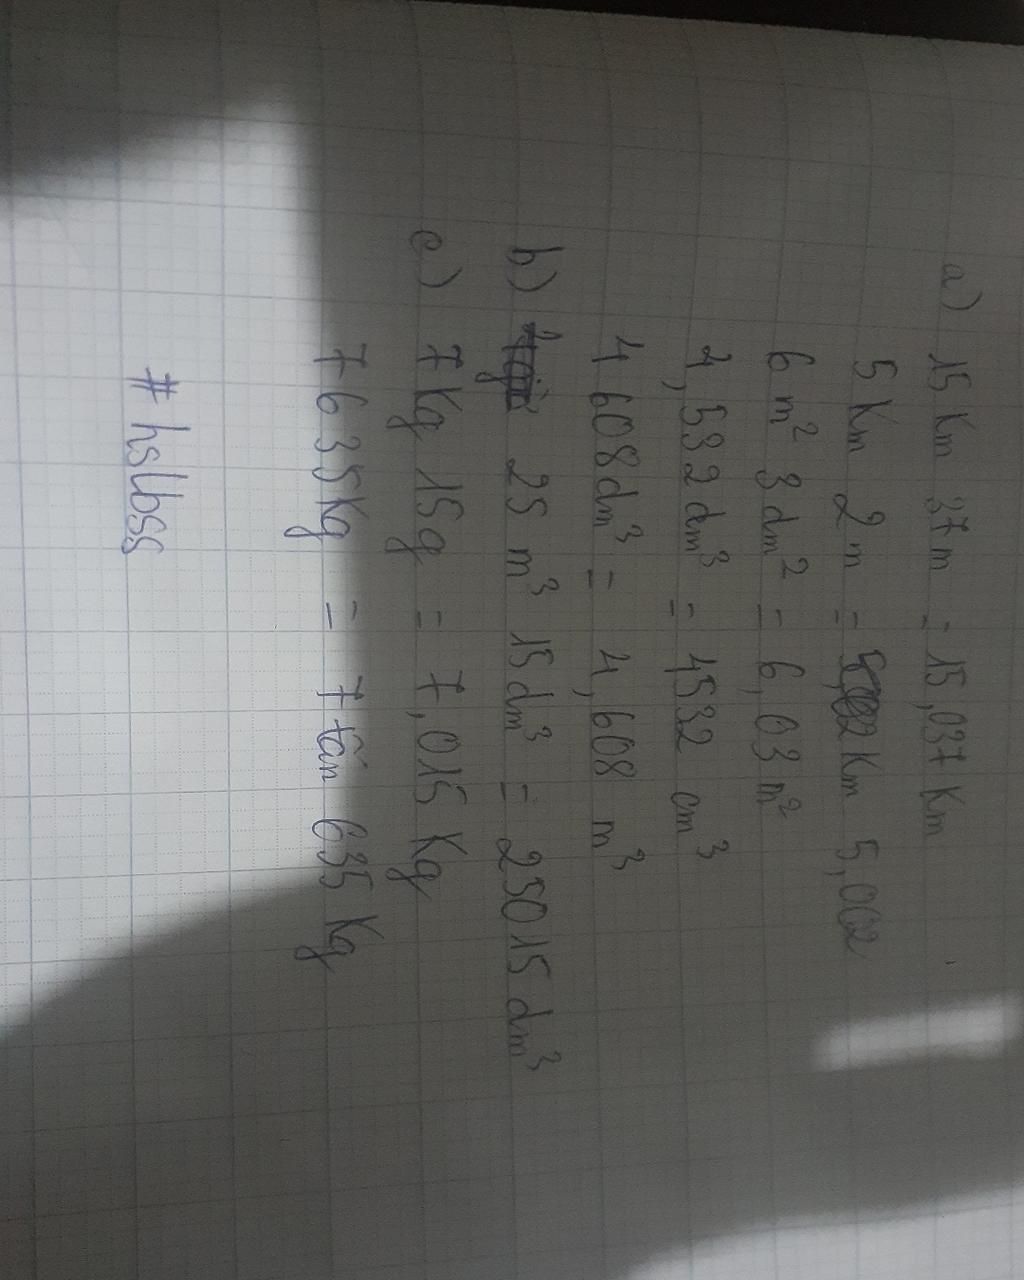 a) 15 Km 37m = 15,037 Km
5 Km 2m = Km 5,002
6 m² 3 dm² = 6,03 m²
4,532 dm³ = 4532 cm³
4 608 dm³ = 4,608 m³
b) 25 m³ 15 dm³ = 25015 dm³
c) 7 Kg 15g = 7,015 Kg
7635Kg = 7 tấn 635 Kg
# hslbss